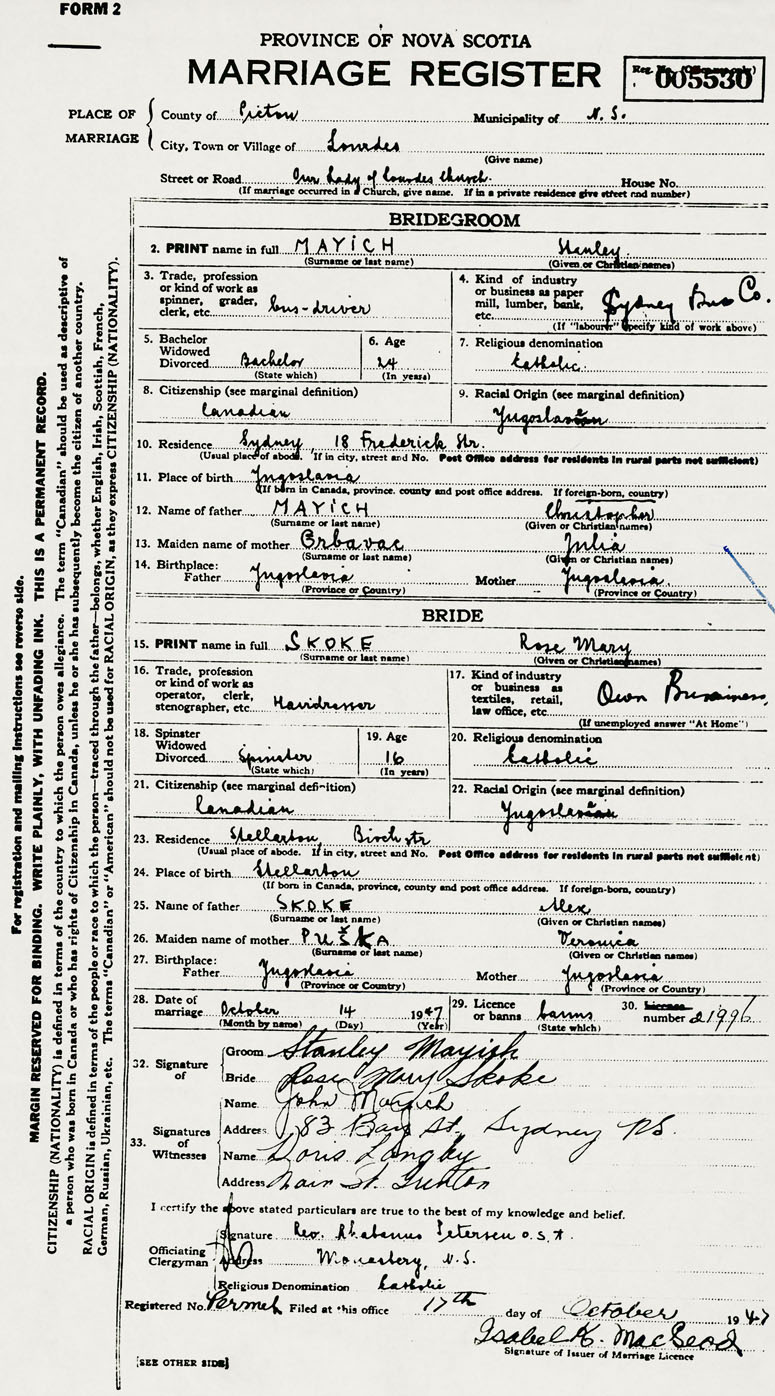 FORM 2
PROVINCE OF NOVA SCOTIA
MARRIAGE REGISTER
005530
PLACE OF MARRIAGE
County of Pictou Municipality of N. S.
City, Town or Village of Lourdes
(Give name)
Street or Road Our Lady of Lourdes Church. House No.
(If marriage occurred in a Church, give name. If in a private residence give street and number)
BRIDEGROOM
2. PRINT name in full MAYICH Stanley
(Surname or last name) (Given or Christian names)
3. Trade, profession or kind of work as spinner, grader, clerk, etc. bus-driver
4. Kind of industry or business as paper mill, lumber, bank, etc. Sydney Bus Co.
(If "labourer" specify kind of work above)
5. Bachelor Widowed Divorced Bachelor
(State which)
6. Age 24
(In years)
7. Religious denomination
Catholic
8. Citizenship (see marginal definition)
Canadian
9. Racial Origin (see marginal definition)
Jugoslavian
10. Residence Sydney, 18 Frederick Str.
(Usual place of abode. If in city, street and No. Post Office address for residents in rural parts not sufficient)
11. Place of birth Jugoslavia
(If born in Canada, province, county and post office address. If foreign-born, country)
12. Name of father MAYICH Christopher
(Surname or last name) (Given or Christian names)
13. Maiden name of mother Grbavac Julia
(Surname or last name) (Given or Christian names)
14. Birthplace:
Father Jugoslavia Mother Jugoslavia.
(Province or Country) (Province or Country)
BRIDE
15. PRINT name in full SKOKE Rose Mary
(Surname or last name) (Given or Christian names)
16. Trade, profession or kind of work as operator, clerk, stenographer, etc. Hairdresser
17. Kind of industry or business as textiles, retail, law office, etc. Own Bussiness,
(If unemployed answer "At Home")
18. Spinster Widowed Divorced Spinster
(State which)
19. Age 16
(In years)
20. Religious denomination
Catholic
21. Citizenship (see marginal definition)
Canadian
22. Racial Origin (see marginal definition)
Jugoslavian
23. Residence Stellarton, Birch str
(Usual place of abode. If in city, street and No. Post Office address for residents in rural parts not sufficient)
24. Place of birth Stellarton
(If born in Canada, province, county and post office address. If foreign-born, country)
25. Name of father SKOKE Alex
(Surname or last name) (Given or Christian names)
26. Maiden name of mother PUŠKA Veronica
(Surname or last name) (Given or Christian names)
27. Birthplace:
Father Jugoslavia Mother Jugoslavia
(Province or Country) (Province or Country)
28. Date of marriage October 14 1947
(Month by name) (Day) (Year)
29. Licence or banns banns
(State which)
30. License number 21996
32. Signature of
Groom Stanley Mayich
Bride Rose Mary Skoke
33. Signatures of Witnesses
Name John Mayich
Address 183 Bay St, Sydney N.S.
Name Doris Langby
Address Main St. Trenton
I certify the above stated particulars are true to the best of my knowledge and belief.
Officiating Clergyman
Signature Rev. Rhabanus Petersen O.S.A.
Address Monastery, N.S.
Religious Denomination Catholic
Registered No. Filed at this office 17th day of October 1947
Isabel K. MacLeod
Signature of Issuer of Marriage Licence
[SEE OTHER SIDE]
For registration and mailing instructions see reverse side.
MARGIN RESERVED FOR BINDING. WRITE PLAINLY, WITH UNFADING INK. THIS IS A PERMANENT RECORD.
CITIZENSHIP (NATIONALITY) is defined in terms of the country to which the person owes allegiance. The term "Canadian" should be used as descriptive of
a person who was born in Canada or who has rights of Citizenship in Canada, unless he or she has subsequently become the citizen of another country.
RACIAL ORIGIN is defined in terms of the people or race to which the person—traced through the father—belongs, whether English, Irish, Scottish, French,
German, Russian, Ukrainian, etc. The terms "Canadian" or "American" should not be used for RACIAL ORIGIN, as they express CITIZENSHIP (NATIONALITY).